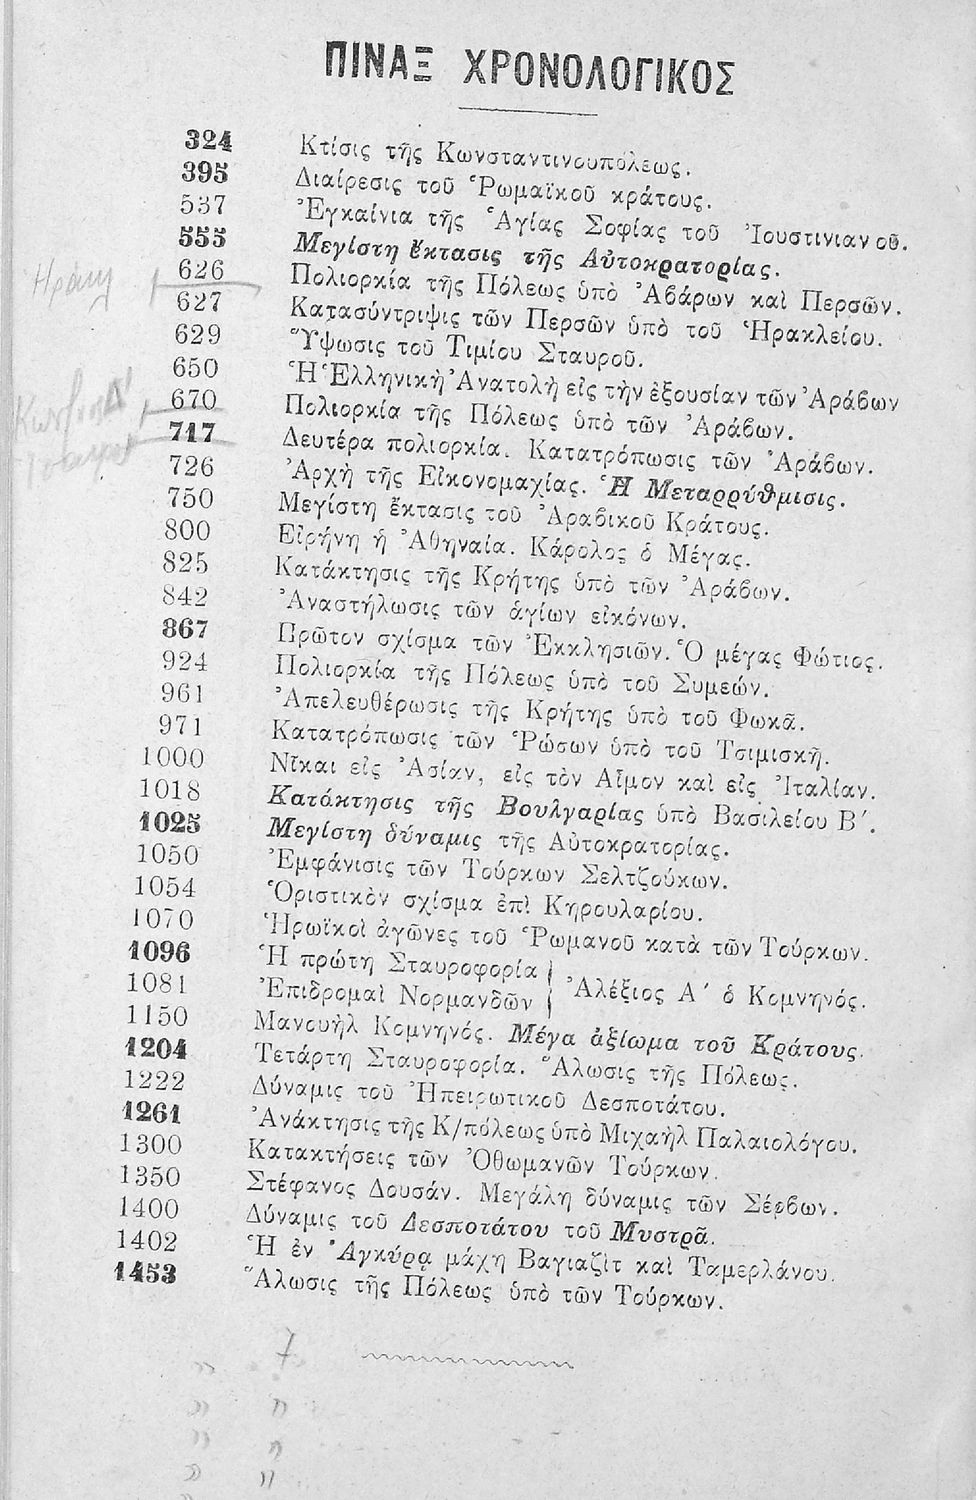 ΠΙΝΑΞ ΧΡΟΝΟΛΟΓΙΚΟΣ
324 Κτίσις τῆς Κωνσταντινουπόλεως.
395 Διαίρεσις τοῦ Ῥωμαϊκοῦ κράτους.
537 Ἐγκαίνια τῆς Ἁγίας Σοφίας τοῦ Ἰουστινιανοῦ.
555 Μεγίστη ἔκτασις τῆς Αὐτοκρατορίας.
626 Πολιορκία τῆς Πόλεως ὑπὸ Ἀβάρων καὶ Περσῶν.
627 Κατασύντριψις τῶν Περσῶν ὑπὸ τοῦ Ἡρακλείου.
629 Ὕψωσις τοῦ Τιμίου Σταυροῦ.
650 Ἡ Ἑλληνικὴ Ἀνατολὴ εἰς τὴν ἐξουσίαν τῶν Ἀράβων
670 Πολιορκία τῆς Πόλεως ὑπὸ τῶν Ἀράβων.
717 Δευτέρα πολιορκία. Κατατρόπωσις τῶν Ἀράβων.
726 Ἀρχὴ τῆς Εἰκονομαχίας. Ἡ Μεταρρύθμισις.
750 Μεγίστη ἔκτασις τοῦ Ἀραβικοῦ Κράτους.
800 Εἰρήνη ἡ Ἀθηναία. Κάρολος ὁ Μέγας.
825 Κατάκτησις τῆς Κρήτης ὑπὸ τῶν Ἀράβων.
842 Ἀναστήλωσις τῶν ἁγίων εἰκόνων.
867 Πρῶτον σχίσμα τῶν Ἐκκλησιῶν. Ὁ μέγας Φώτιος.
924 Πολιορκία τῆς Πόλεως ὑπὸ τοῦ Συμεών.
961 Ἀπελευθέρωσις τῆς Κρήτης ὑπὸ τοῦ Φωκᾶ.
971 Κατατρόπωσις τῶν Ῥώσων ὑπὸ τοῦ Τσιμισκῆ.
1000 Νῖκαι εἰς Ἀσίαν, εἰς τὸν Αἷμον καὶ εἰς Ἰταλίαν.
1018 Κατάκτησις τῆς Βουλγαρίας ὑπὸ Βασιλείου Β΄.
1025 Μεγίστη δύναμις τῆς Αὐτοκρατορίας.
1050 Ἐμφάνισις τῶν Τούρκων Σελτζούκων.
1054 Ὁριστικὸν σχίσμα ἐπὶ Κηρουλαρίου.
1070 Ἡρωϊκοὶ ἀγῶνες τοῦ Ῥωμανοῦ κατὰ τῶν Τούρκων.
1096 Ἡ πρώτη Σταυροφορία
1081 Ἐπιδρομαὶ Νορμανδῶν } Ἀλέξιος Α΄ ὁ Κομνηνός.
1150 Μανουὴλ Κομνηνός. Μέγα ἀξίωμα τοῦ Κράτους.
1204 Τετάρτη Σταυροφορία. Ἅλωσις τῆς Πόλεως.
1222 Δύναμις τοῦ Ἠπειρωτικοῦ Δεσποτάτου.
1261 Ἀνάκτησις τῆς Κ/πόλεως ὑπὸ Μιχαὴλ Παλαιολόγου.
1300 Κατακτήσεις τῶν Ὀθωμανῶν Τούρκων.
1350 Στέφανος Δουσάν. Μεγάλη δύναμις τῶν Σέρβων.
1400 Δύναμις τοῦ Δεσποτάτου τοῦ Μυστρᾶ.
1402 Ἡ ἐν Ἀγκύρᾳ μάχη Βαγιαζὶτ καὶ Ταμερλάνου.
1453 Ἅλωσις τῆς Πόλεως ὑπὸ τῶν Τούρκων.